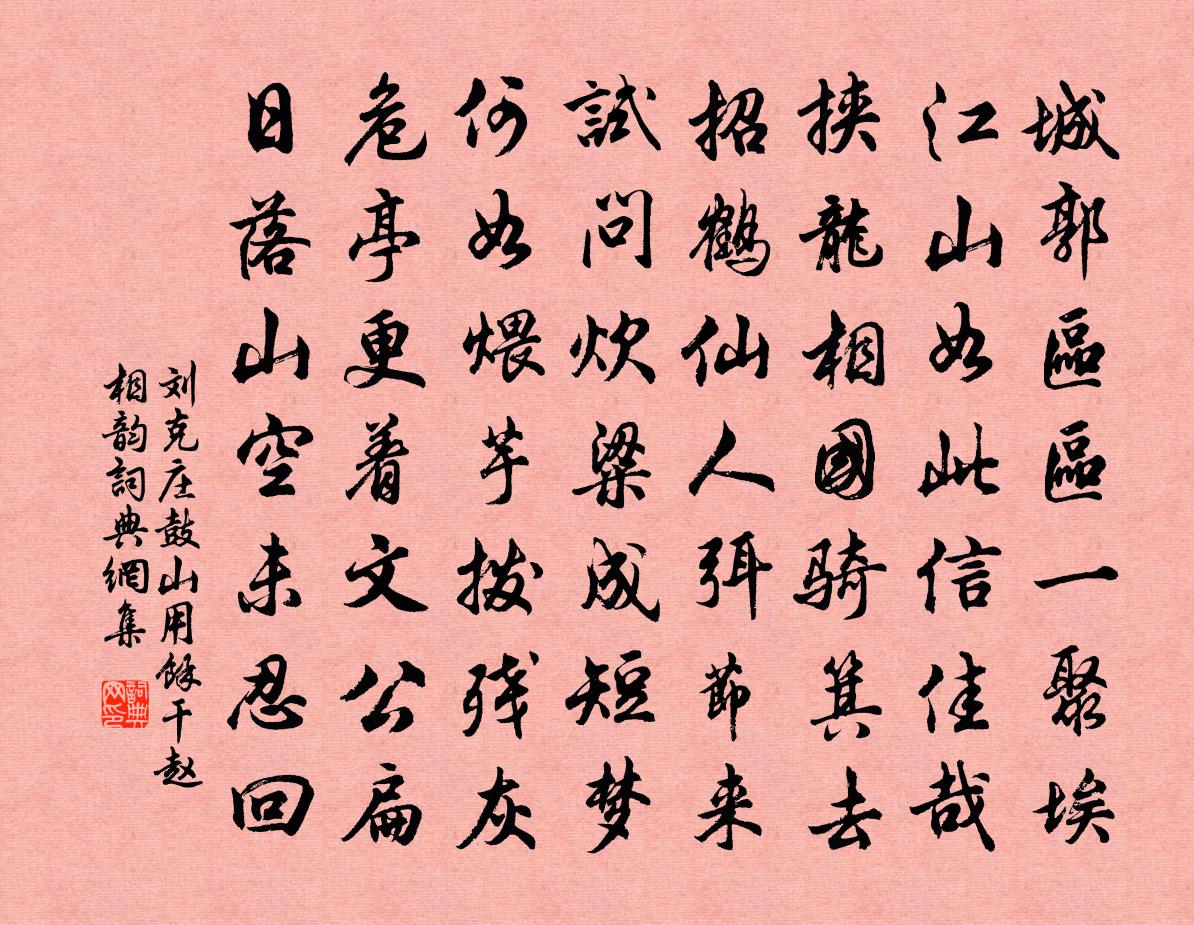 城郭區區一聚埃
江山如此信佳哉
挾龍相國騎箕去
招鶴仙人弭節来
試問炊粱成短梦
何如煨芋拨残灰
危亭更着文公扁
日落山空未忍回
刘克庄鼓山用餘干赵
相韵詞典網集
詞典
网印